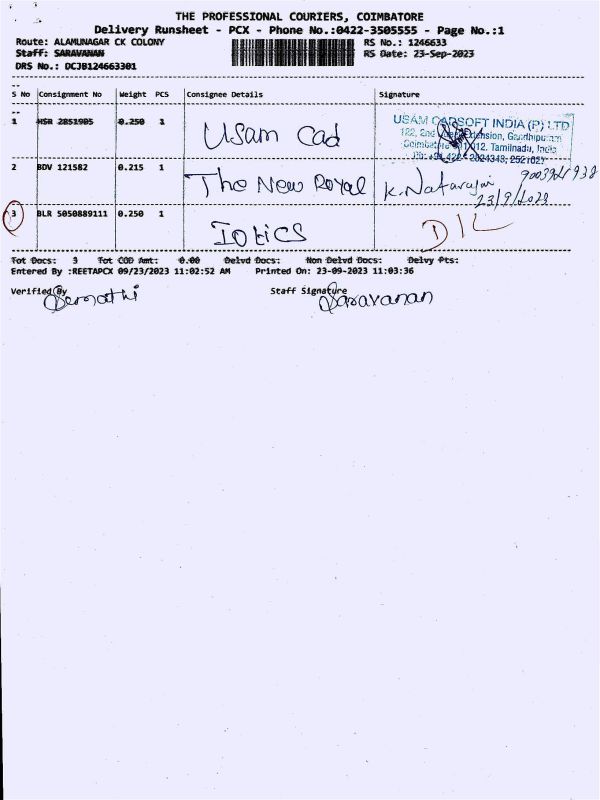 THE PROFESSIONAL COURIERS, COIMBATORE
Delivery Runsheet - PCX - Phone No.:0422-3505555 - Page No.:1
Route: ALAMUNAGAR CK COLONY RS No.: 1246633
Staff: SARAVANAN RS Date: 23-Sep-2023
DRS No.: DCJB124663301
S No Consignment No Weight PCS Consignee Details Signature
1 HSR 2851905 0.250 1 Usam Cad
USAM CADSOFT INDIA (P) LTD
122, 2nd Extension, Gandhipuram
Coimbatore Tamilnadu, India
2 BDV 121582 0.215 1 The New Royal K. Natarajan
23/9/2023
3 BLR 5050889111 0.250 1 Iotics D/L
Tot Docs: 3 Tot COD Amt: 0.00 Delvd Docs: Non Delvd Docs: Delvy Pts:
Entered By :REETAPCX 09/23/2023 11:02:52 AM Printed On: 23-09-2023 11:03:36
Verified By Staff Signature Saravanan